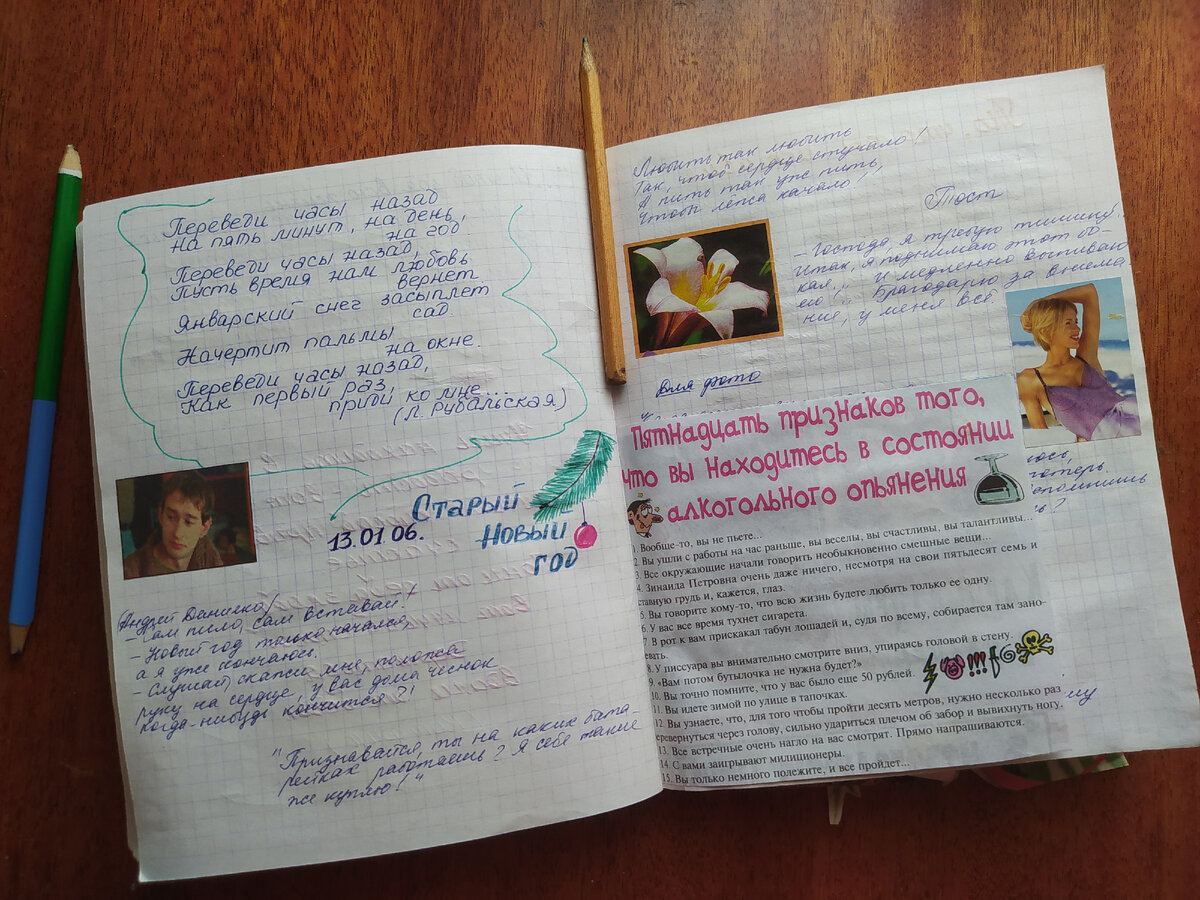 Переведи часы назад
На пять минут, на день,
на год
Переведи часы назад,
Пусть время нам любовь
вернет
Январский снег засыплет
сад.
Начертит пальмы
на окне.
Переведи часы назад,
Как первый раз,
приди ко мне...
(Л. Рубальская)
Старый
13.01.06.
Новый
год
(Андрей Данилко)
- Новый год только начался,
а я уже кончаюсь.
- Слушай, скажи мне, положа
руку на сердце, у вас дома чеснок
когда-нибудь кончится?!
"Признавайся, ты на каких бата-
рейках работаешь? Я себе такие
же куплю!"
Любить так любить
Так, чтоб сердце стучало!
А пить так уже пить,
Чтоб
качало!
Тост
- Господа, я требую тишину!..
Итак, я поднимаю этот бо-
кал,.. и медленно выпиваю
его... Благодарю за внима
ние, у меня всё.
для фото
Пятнадцать признаков того,
что вы находитесь в состоянии
алкогольного опьянения
юсь,
потерь.
вспомнишь
1. Вообще-то, вы не пьете...
2. Вы ушли с работы на час раньше, вы веселы, вы счастливы, вы талантливы...
3. Все окружающие начали говорить необыкновенно смешные вещи...
4. Зинаида Петровна очень даже ничего, несмотря на свои пятьдесят семь и
ставную грудь и, кажется, глаз.
5. Вы говорите кому-то, что всю жизнь будете любить только ее одну.
6. У вас все время тухнет сигарета.
7. В рот к вам прискакал табун лошадей и, судя по всему, собирается там зано-
евать.
8. У писсуара вы внимательно смотрите вниз, упираясь головой в стену.
9. «Вам потом бутылочка не нужна будет?»
10. Вы точно помните, что у вас было еще 50 рублей.
11. Вы идете зимой по улице в тапочках.
12. Вы узнаете, что, для того чтобы пройти десять метров, нужно несколько раз
перевернуться через голову, сильно удариться плечом об забор и вывихнуть ногу.
13. Все встречные очень нагло на вас смотрят. Прямо напрашиваются.
14. С вами заигрывают милиционеры.
15. Вы только немного полежите, и все пройдет...